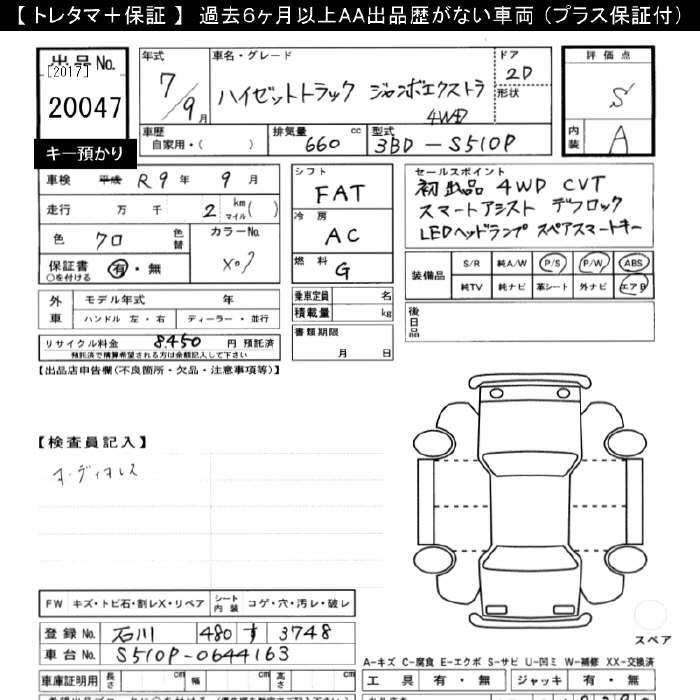 【 トレタマ＋保証 】 過去6ヶ月以上AA出品歴がない車両（プラス保証付）
出品No.
[2017]
20047
キー預かり
年式 7/9月
車名・グレード
ハイゼットトラック ジャンボエクストラ
4WD
ドア 2D
形状
評価点
S
内装 A
車歴 自家用・( )
排気量 660 cc
型式 3BD-S510P
車検 平成 R9年 9月
走行 万 千 2 km マイル( )
色 クロ 色替
カラーNo. X07
保証書 有・無
○を付ける
シフト FAT
冷房 AC
燃料 G
セールスポイント
初出品 4WD CVT
スマートアシスト デフロック
LEDヘッドランプ スペアスマートキー
装備品 S/R 純A/W P/S P/W ABS
純TV 純ナビ 革シート 外ナビ エアB
外車 モデル年式 年
ハンドル 左・右 ディーラー・並行
乗車定員 名
積載量 kg
後日品
リサイクル料金 8450 円 預託済
預託済で精算希望される方は金額記入して下さい
書類期限
月 日
【出品店申告欄(不良箇所・欠品・注意事項等)】
【検査員記入】
オーディオレス
FW キズ・トビ石・割レX・リペア シート内装 コゲ・穴・汚レ・破レ
登録No. 石川 480 す 3748
車台No. S510P-0644163
スペア
A-キズ C-腐食 E-エクボ S-サビ U-凹ミ W-補修 XX-交換済
車庫証明用 長さ cm 幅 cm 高さ cm
工具 有・無 ジャッキ 有・無